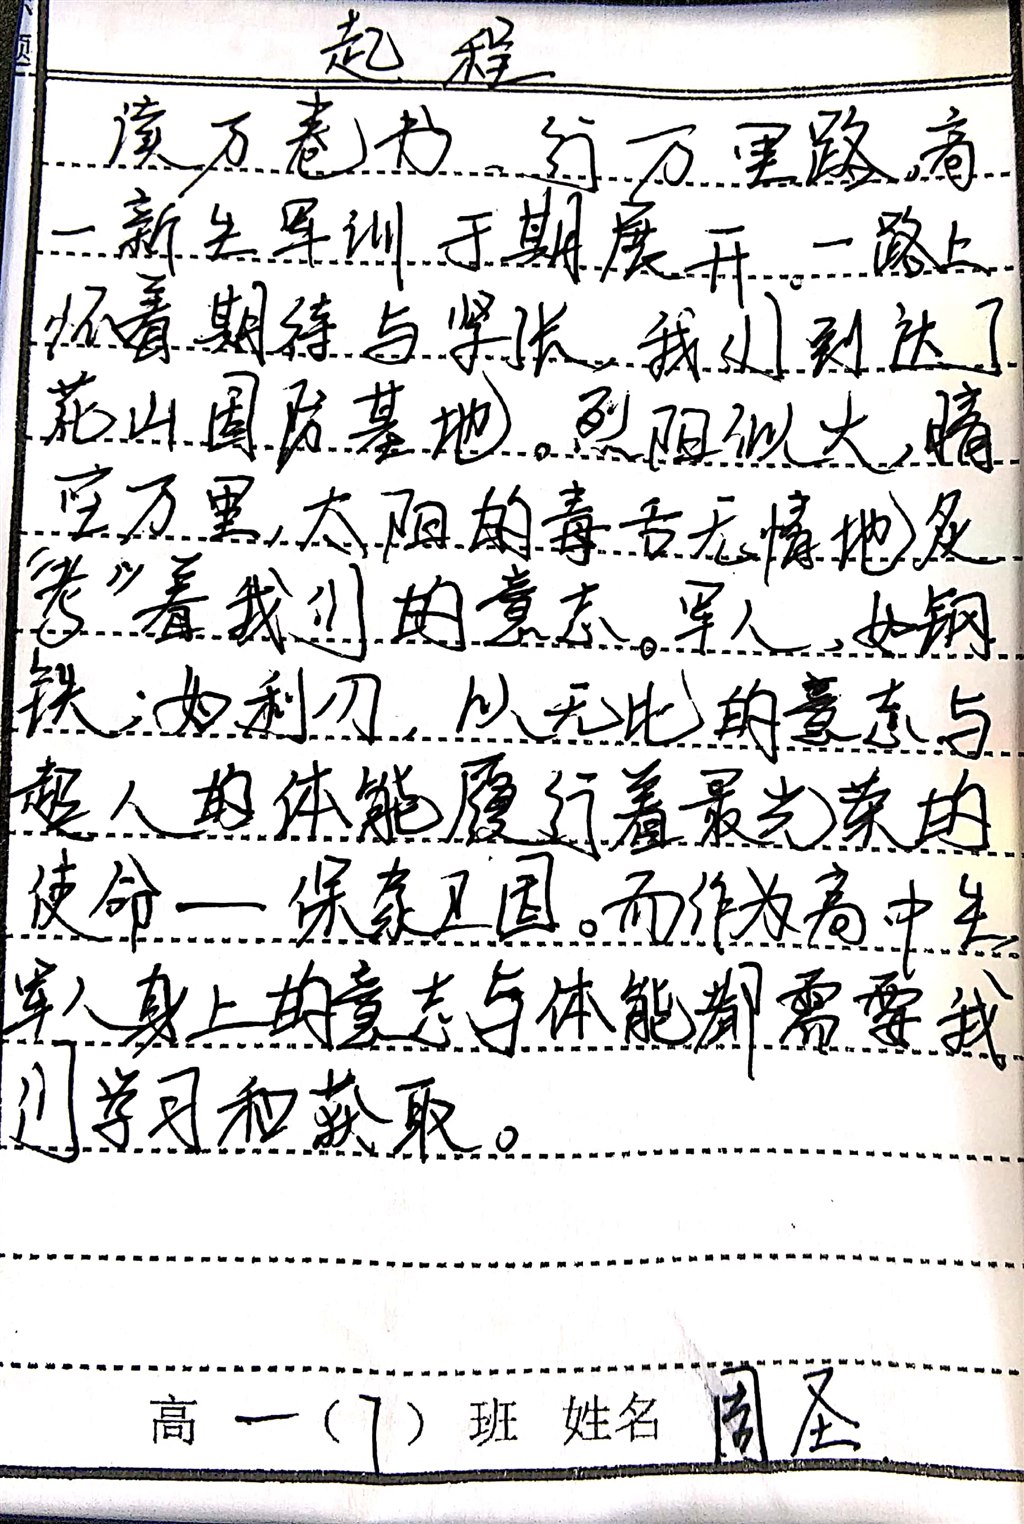 起程
读万卷书、行万里路,高
一新生军训于期展开。一路上
怀着期待与紧张,我们到达了
花山国防基地。烈阳似火,晴
空万里,太阳的毒舌无情地炙
“考”着我们的意志。军人,如钢
铁;如利刃,以无比的意志与
超人的体能履行着最光荣的
使命—保家卫国。而作为高中生,
军人身上的意志与体能都需要我
们学习和获取。
高一(7)班 姓名 周圣